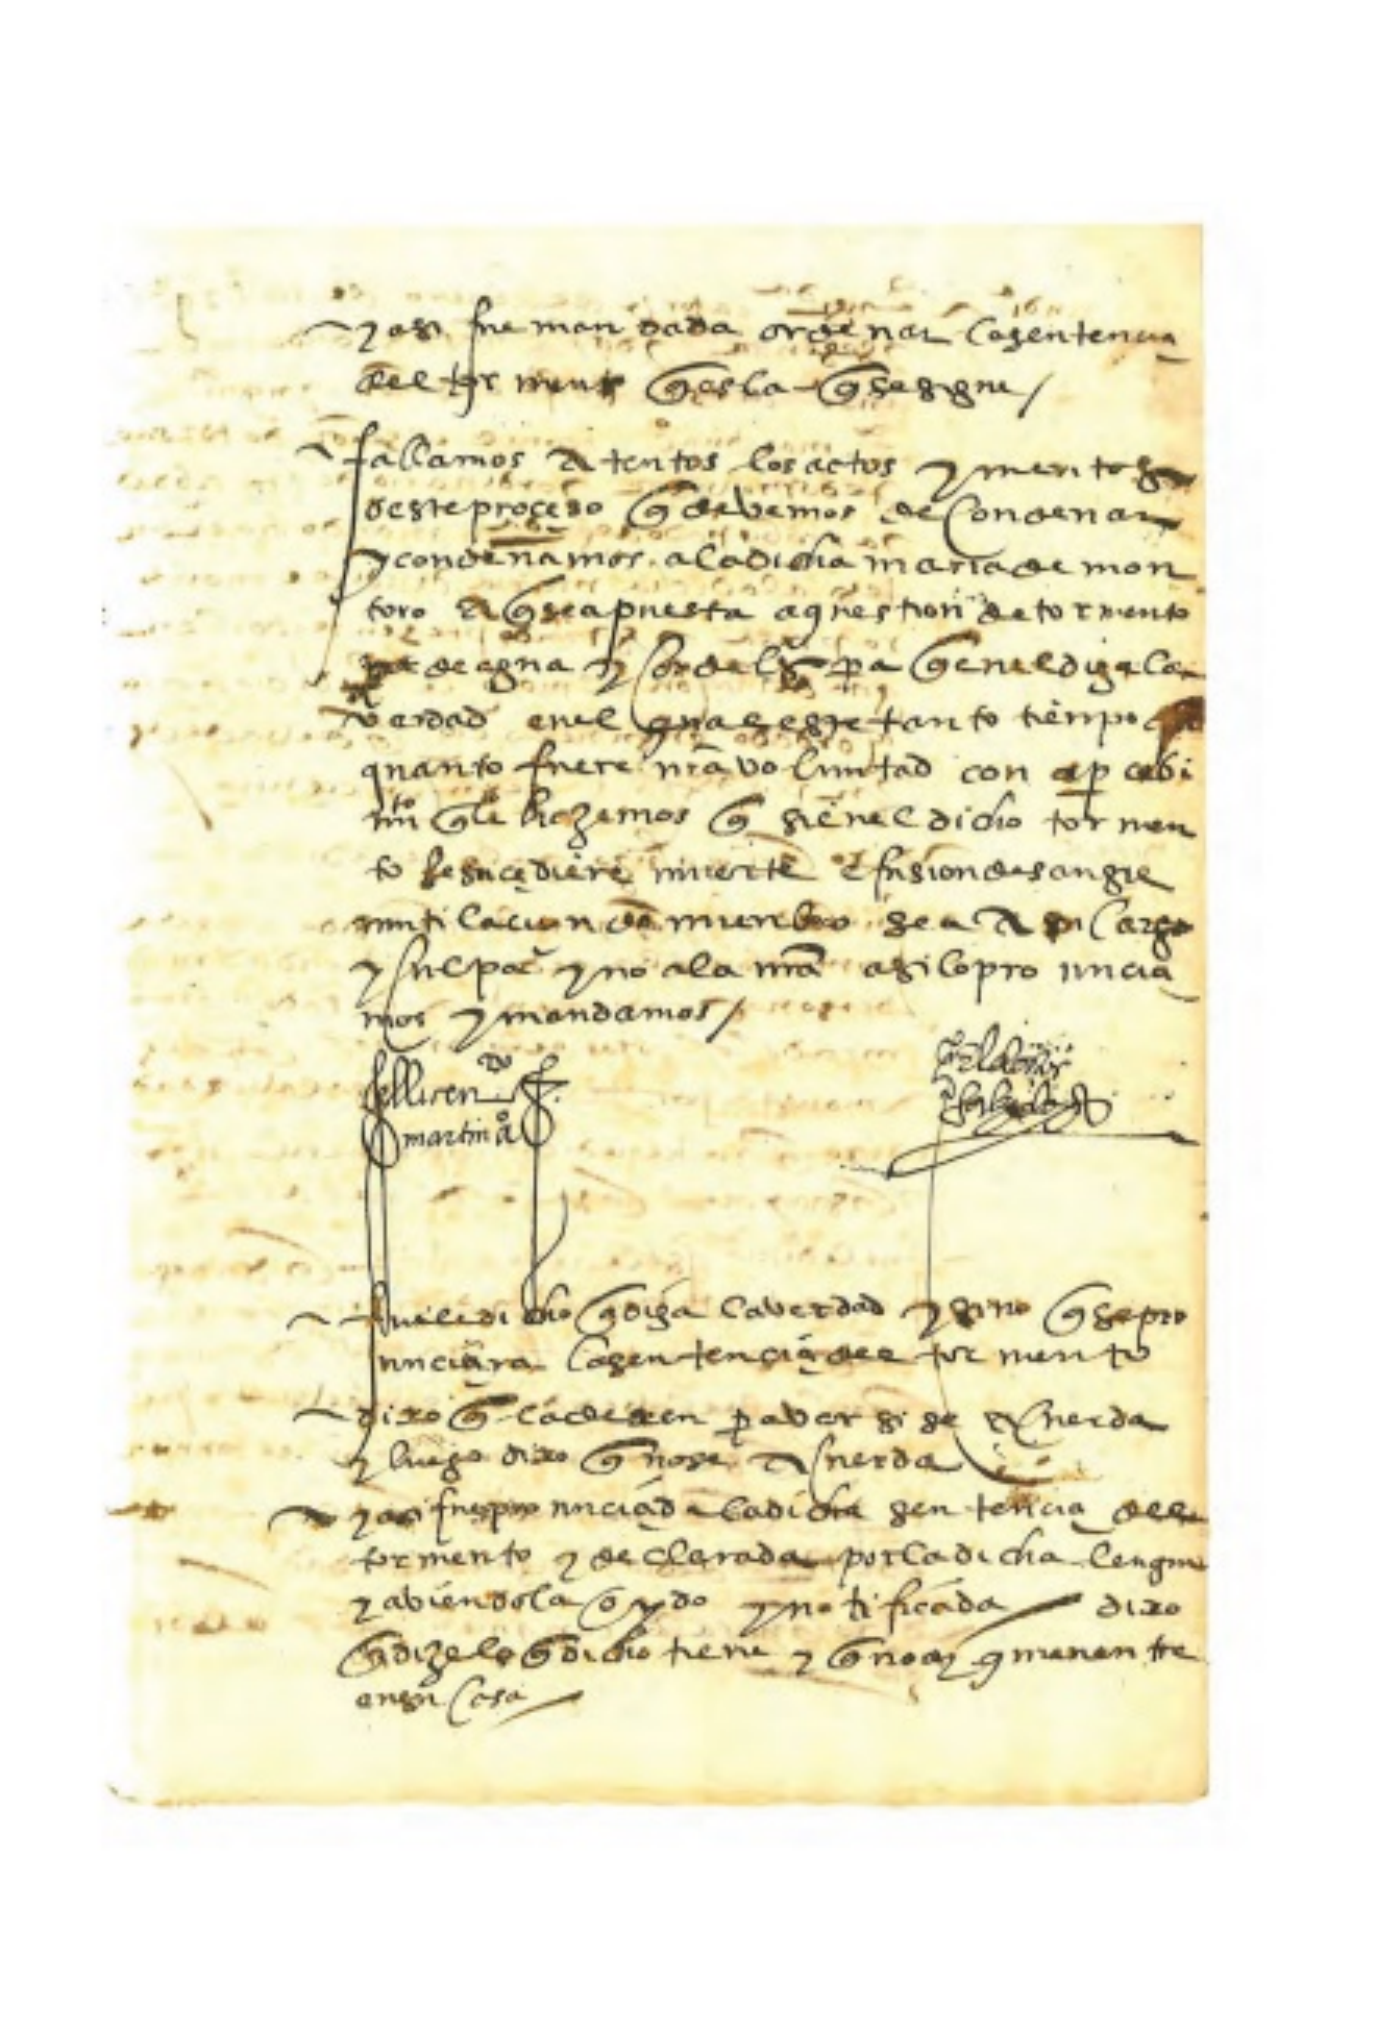 y asi fue mandada ordenar la sentencia
del tormento q es la q se sigue /
fallamos atentos los actos y meritos
deste proçeso q devemos de condenar
y condenamos a la dicha maria de mon
toro a q sea puesta a question de tormento
de agua y cordeles pa q en el diga la
verdad en el qual este tanto tienpo
quanto fuere nra voluntad con aperçebi
mto q le hazemos q si en el dicho tormen
to le suçediere muerte efusion de sangre
mutilacion de miembro sea a su cargo
y culpa y no a la nra asi lo pronuncia
mos y mandamos /
el licendo
martin
fuele dicho q diga la verdad y si no q se pro
nunciara la sentencia del tormento
dixo q la dexen pa ver si se acuerda
y luego dixo q no se acuerda
y asi fue pronunciada la dicha sentencia del
tormento y declarada por la dicha lengua
y abiendola oydo y notificada dixo
q dize lo q dicho tiene y q no ay q menentre
en su casa